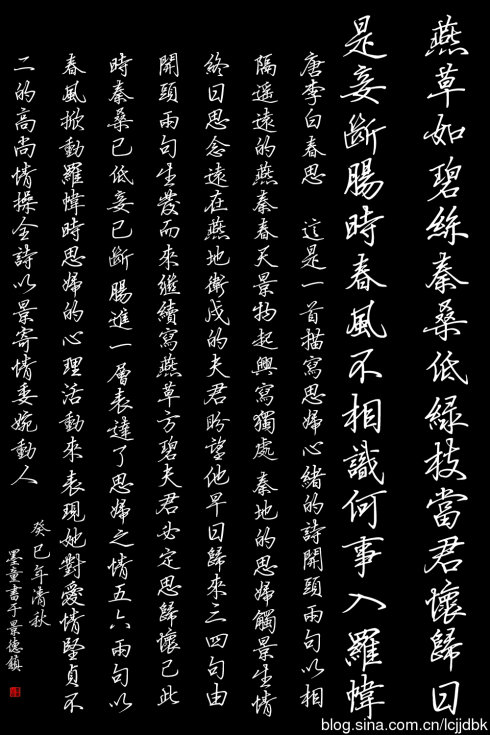 燕草如碧絲秦桑低緑枝當君懷歸日
是妾斷腸時春風不相識何事入羅幃
唐李白春思 這是一首描寫思婦心緒的詩開頭兩句以相
隔遥遠的燕秦春天景物起興寫獨處秦地的思婦觸景生情
終日思念遠在燕地衛戍的夫君盼望他早日歸來三四句由
開頭兩句生發而來繼續寫燕草方碧夫君必定思歸懷已此
時秦桑已低妾已斷腸進一層表達了思婦之情五六兩句以
春風掀動羅幃時思婦的心理活動來表現她對愛情堅貞不
二的高尚情操全詩以景寄情委婉動人
癸巳年清秋
墨童書于景德鎮
blog.sina.com.cn/lcjjdbk